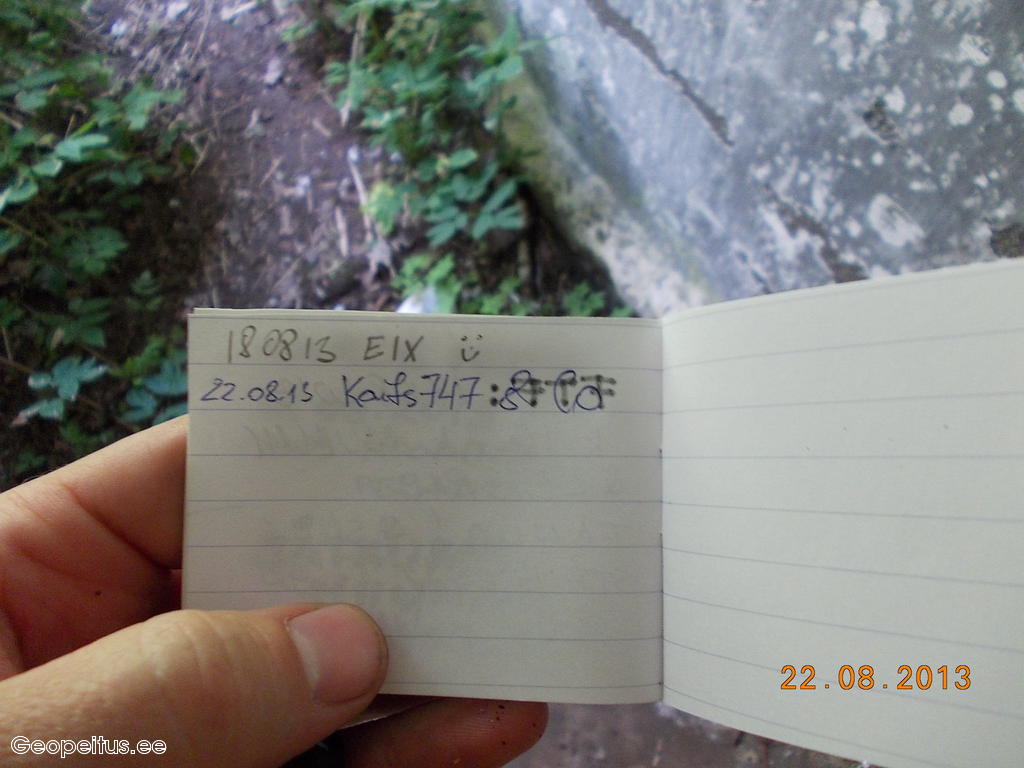 180813 EIX
22.08.13 Kaifs747
22.08.2013
Geopeitus.ee